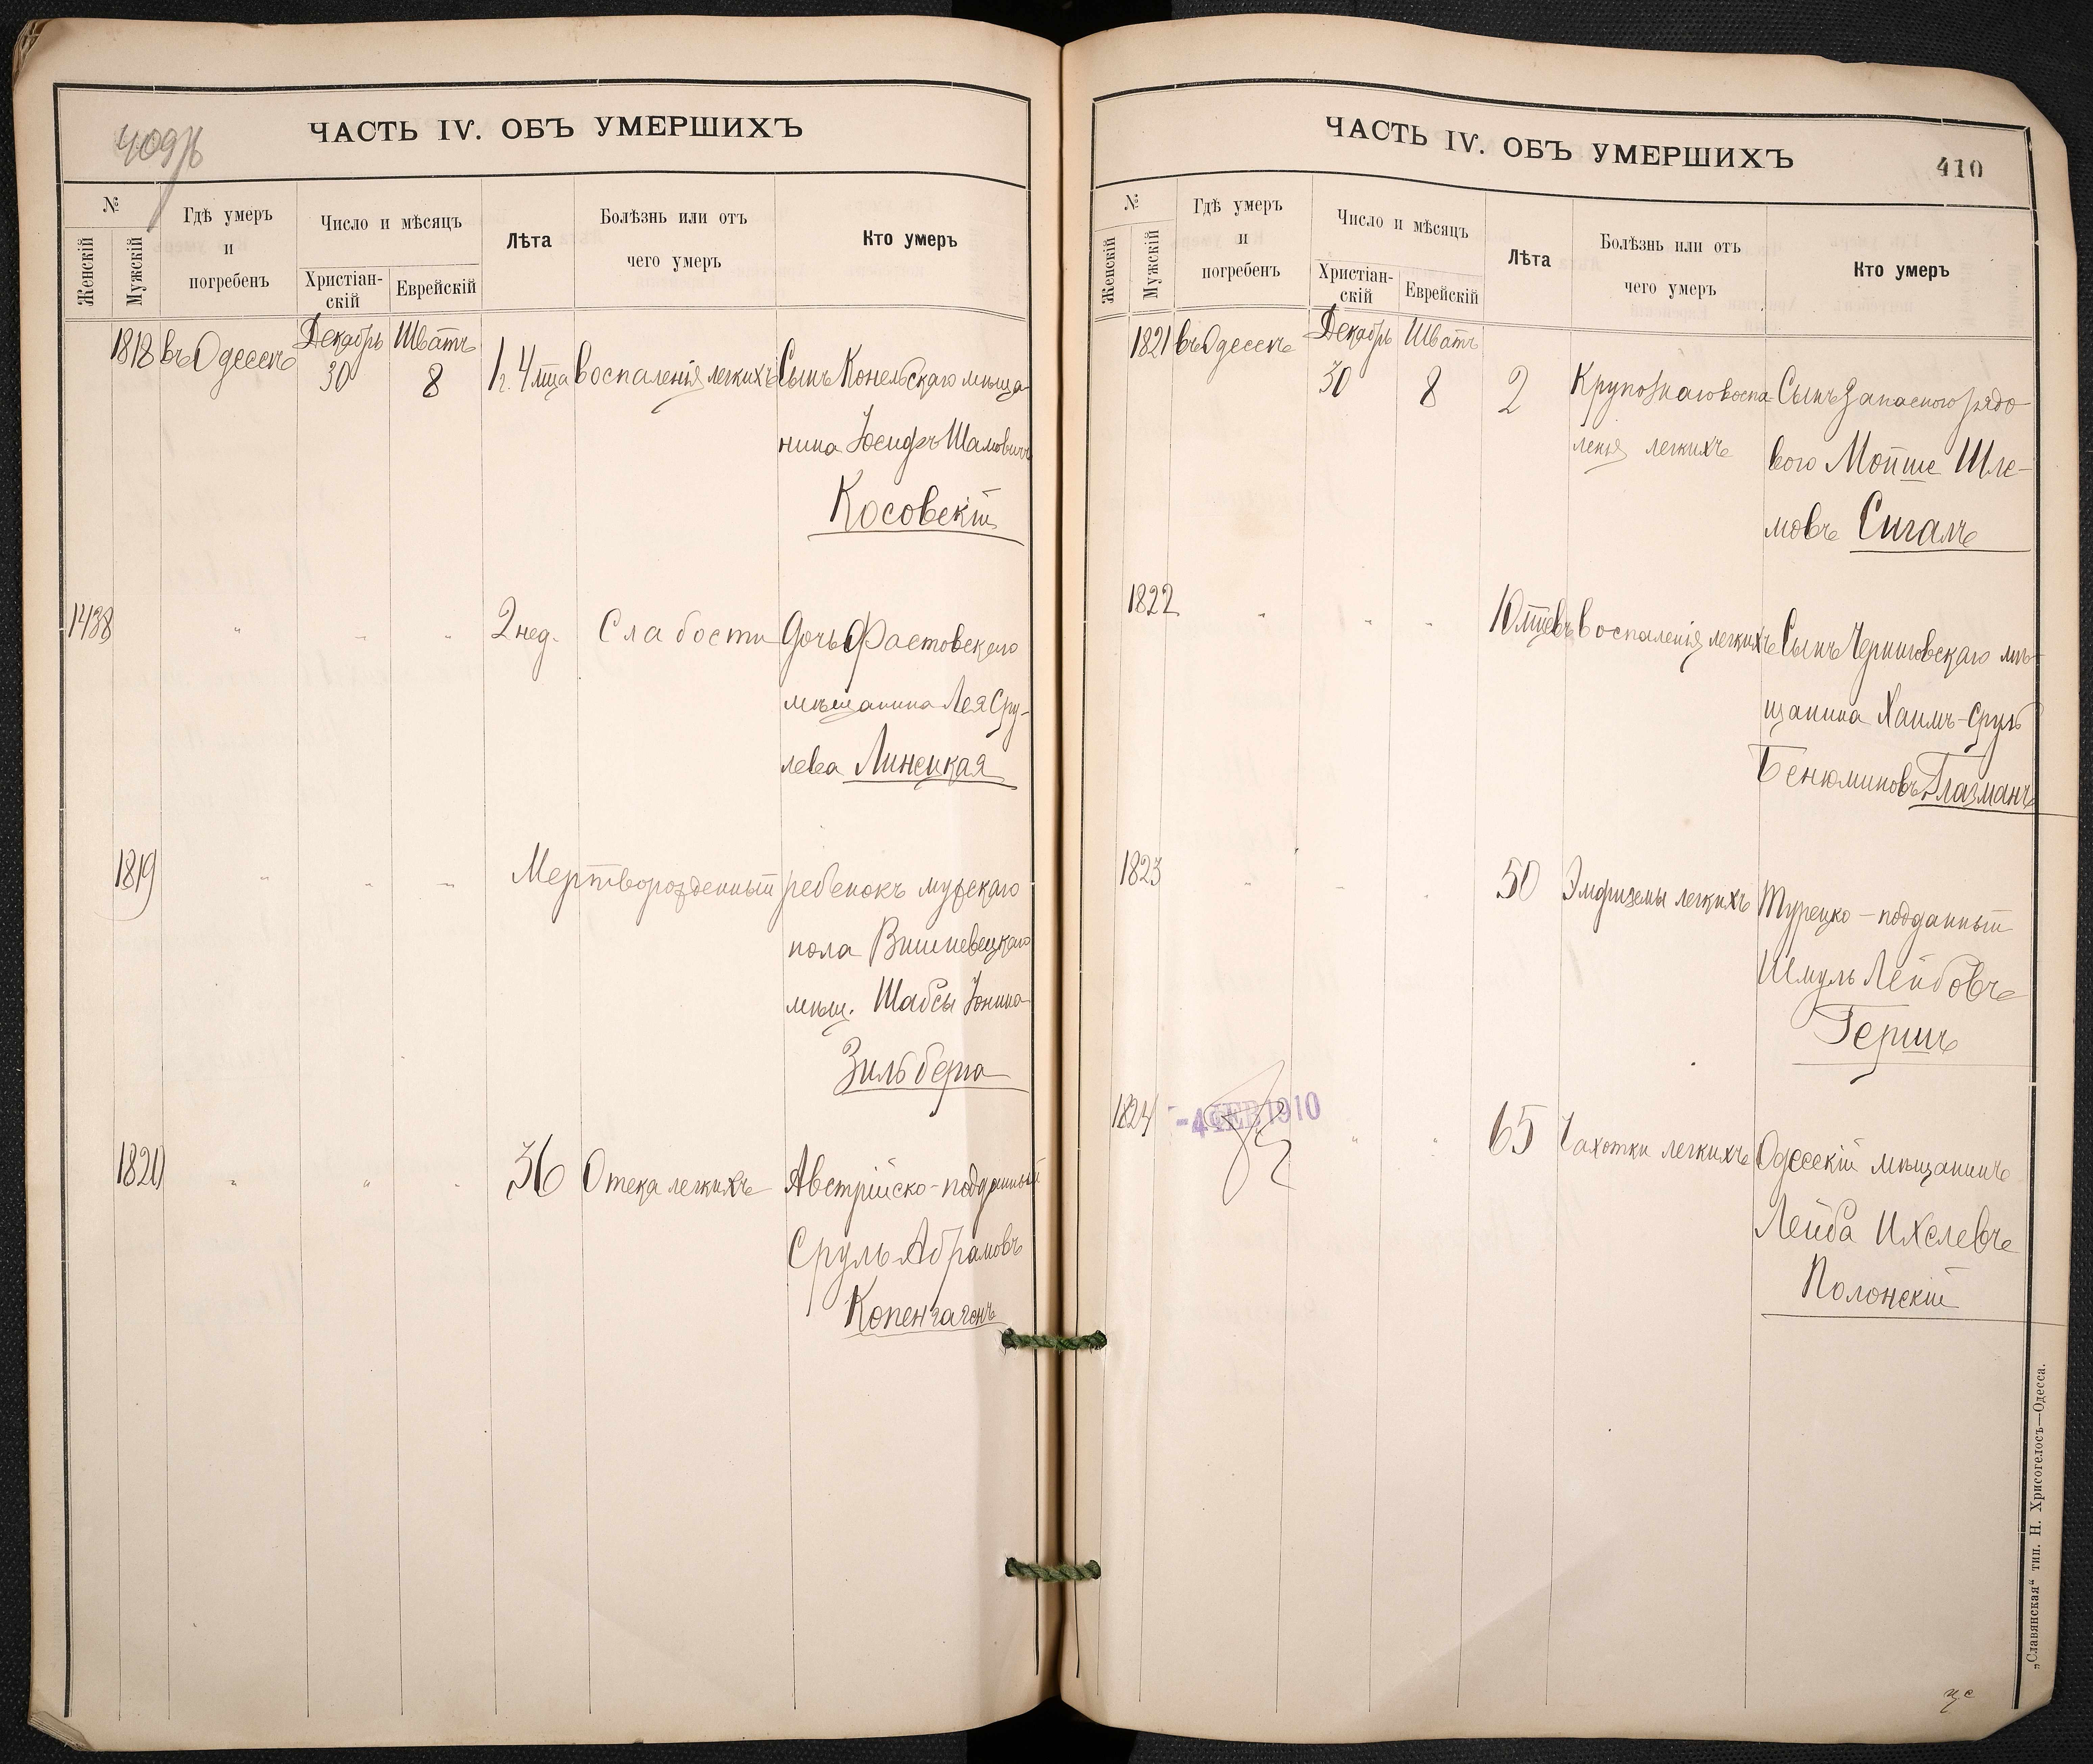 409/б
ЧАСТЬ IV. ОБЪ УМЕРШИХЪ
№
Женскій
Мужскій
Гдѣ умеръ
и
погребенъ
Число и мѣсяцъ
Христіан-
скій
Еврейскій
Лѣта
Болѣзнь или отъ
чего умеръ
Кто умеръ
1818 въ Одессѣ Декабрь 30 Шватъ 8 1 г. 4 мца воспаленія легкихъ Сынъ Конельскаго мѣща-
нина Іосифъ
Косовскій
1438 " " " 2 нед. Слабости Дочь Фастовскаго
мѣщанина Лея Сру-
лева Линецкая
1819 " " " Мертворожденный ребенокъ мужскаго
пола Вишневецкаго
мѣщ. Шабсы Іонина
Зильберга
1820 " " " 36 Отека легкихъ Австрійско-подданный
Сруль Абрамовъ
Копенгагонъ
ЧАСТЬ IV. ОБЪ УМЕРШИХЪ
410
№
Женскій
Мужскій
Гдѣ умеръ
и
погребенъ
Число и мѣсяцъ
Христіан-
скій
Еврейскій
Лѣта
Болѣзнь или отъ
чего умеръ
Кто умеръ
1821 въ Одессѣ Декабрь 30 Шватъ 8 2 Крупознаго воспа- Сынъ запасного рядо-
ленія легкихъ вого Мойше Шле-
мовъ Сигалъ
1822 " " " 10 мцевъ воспаленія легкихъ Сынъ Черниговскаго мѣ-
щанина Хаимъ-Сруль
Бенюминовъ Глазманъ
1823 " " " 50 Эмфиземы легкихъ Турецко-подданный
Шмуль Лейбовъ
Гершъ
1824 -4 ФЕВ 1910 " " 65 Чахотки легкихъ Одесскій мѣщанинъ
Лейба Ихелевъ
Полонскій
„Славянская“ тип. Н. Хрисогелосъ—Одесса.